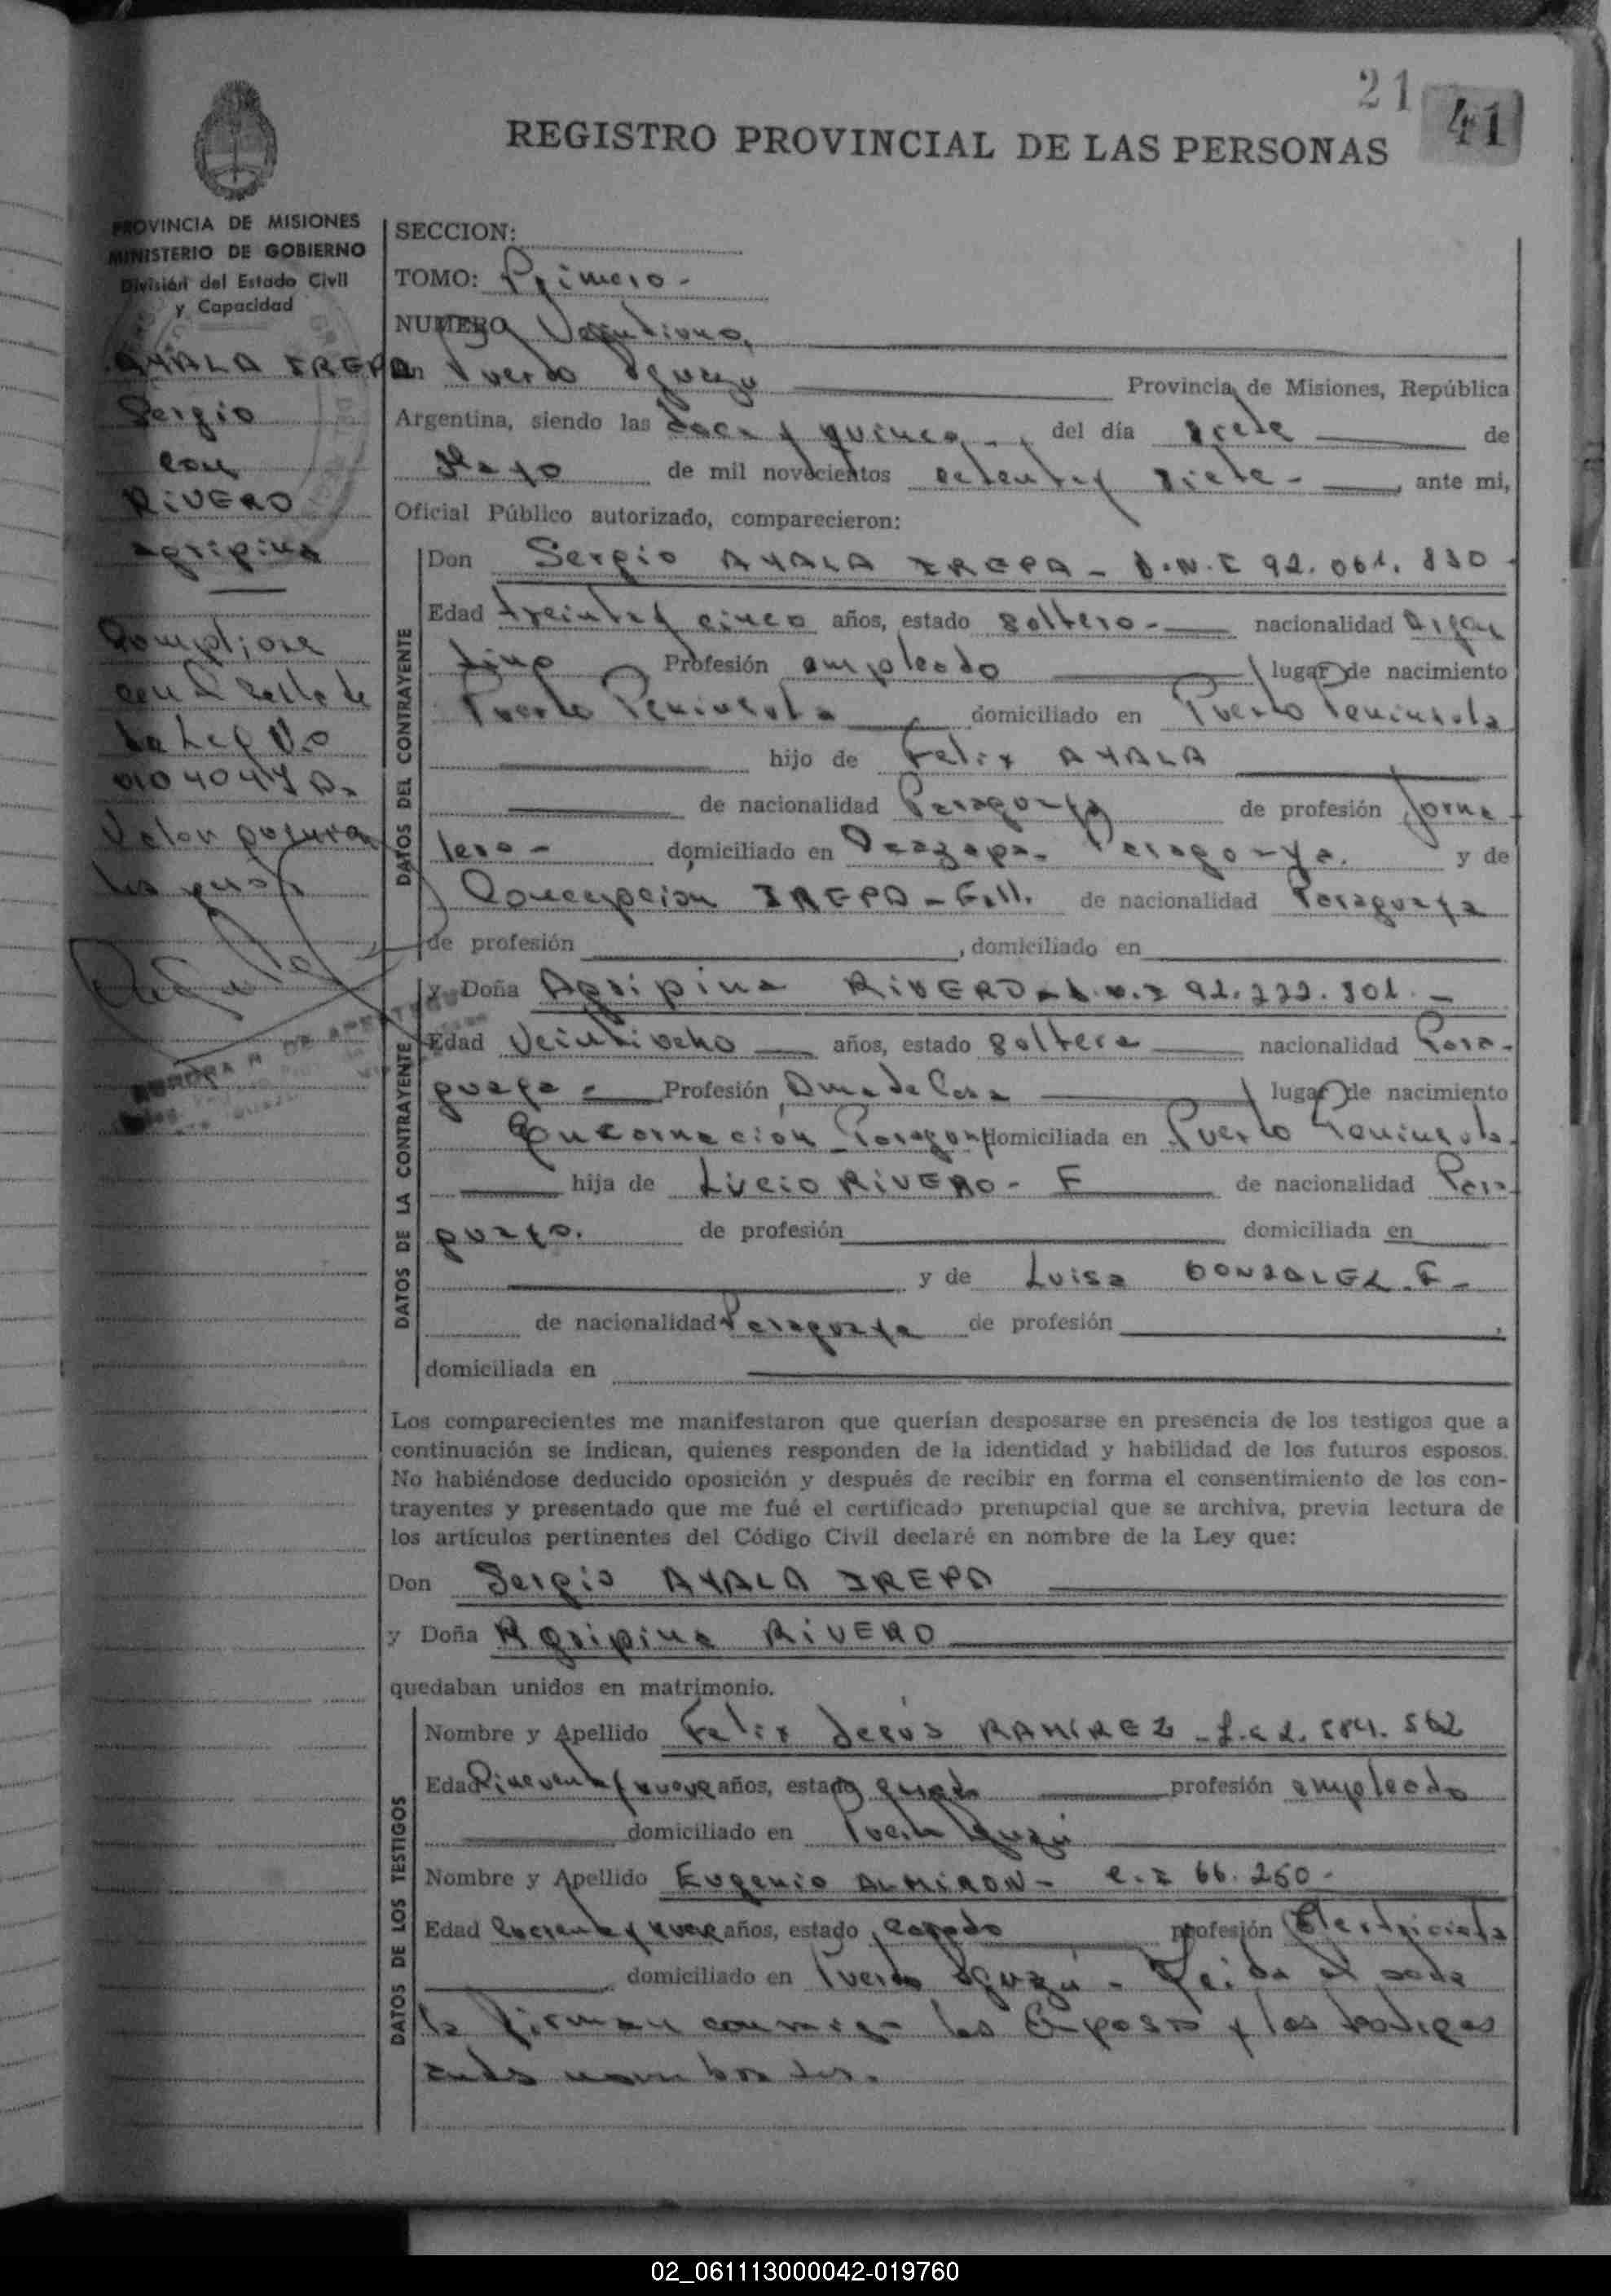 21 41
REGISTRO PROVINCIAL DE LAS PERSONAS
PROVINCIA DE MISIONES
MINISTERIO DE GOBIERNO
División del Estado Civil
y Capacidad
AYALA IREPA
Sergio
con
RIVERO
Agripina
la Ley No
SECCION:
TOMO: Primero -
NUMERO Veintiuno,
En Puerto Iguazu Provincia de Misiones, República
Argentina, siendo las doce y quince - , del día siete de
Mayo de mil novecientos setenta y siete - , ante mi,
Oficial Público autorizado, comparecieron:
DATOS DEL CONTRAYENTE
Don Sergio AYALA IREPA - D.N.I 92.061.830 -
Edad treinta y cinco años, estado soltero - nacionalidad Argen
tino Profesión empleado lugar de nacimiento
Puerto Peninsula domiciliado en Puerto Peninsula
hijo de Felix AYALA
de nacionalidad Paraguaya de profesión Jorna
lero - domiciliado en Paraguaya. y de
Concepcion IREPA - Fall. de nacionalidad Paraguaya
de profesión , domiciliado en
DATOS DE LA CONTRAYENTE
y Doña Agripina RIVERO - D.N.I 92.222.801 -
Edad Veintiocho años, estado soltera nacionalidad Para-
guaya - Profesión Ama de Casa lugar de nacimiento
Encarnacion Paraguay domiciliada en Puerto Peninsula -
hija de Lucio RIVERO - F de nacionalidad Para
guayo. de profesión domiciliada en
y de Luisa GONZALEZ. F -
de nacionalidad Paraguaya de profesión ,
domiciliada en
Los comparecientes me manifestaron que querían desposarse en presencia de los testigos que a
continuación se indican, quienes responden de la identidad y habilidad de los futuros esposos.
No habiéndose deducido oposición y después de recibir en forma el consentimiento de los con-
trayentes y presentado que me fué el certificado prenupcial que se archiva, previa lectura de
los artículos pertinentes del Código Civil declaré en nombre de la Ley que:
Don Sergio AYALA IREPA
y Doña Agripina RIVERO
quedaban unidos en matrimonio.
DATOS DE LOS TESTIGOS
Nombre y Apellido Felix Jesús RAMIREZ - 584.562
Edad años, estado profesión empleado
domiciliado en Puerto Iguazú
Nombre y Apellido Eugenio ALMIRON - C.I 66.250 -
Edad años, estado casado profesión Electricista
domiciliado en Puerto Iguazú - Leida el acta
la firman conmigo los Esposos y los testigos
antes nombrados.
02_061113000042-019760